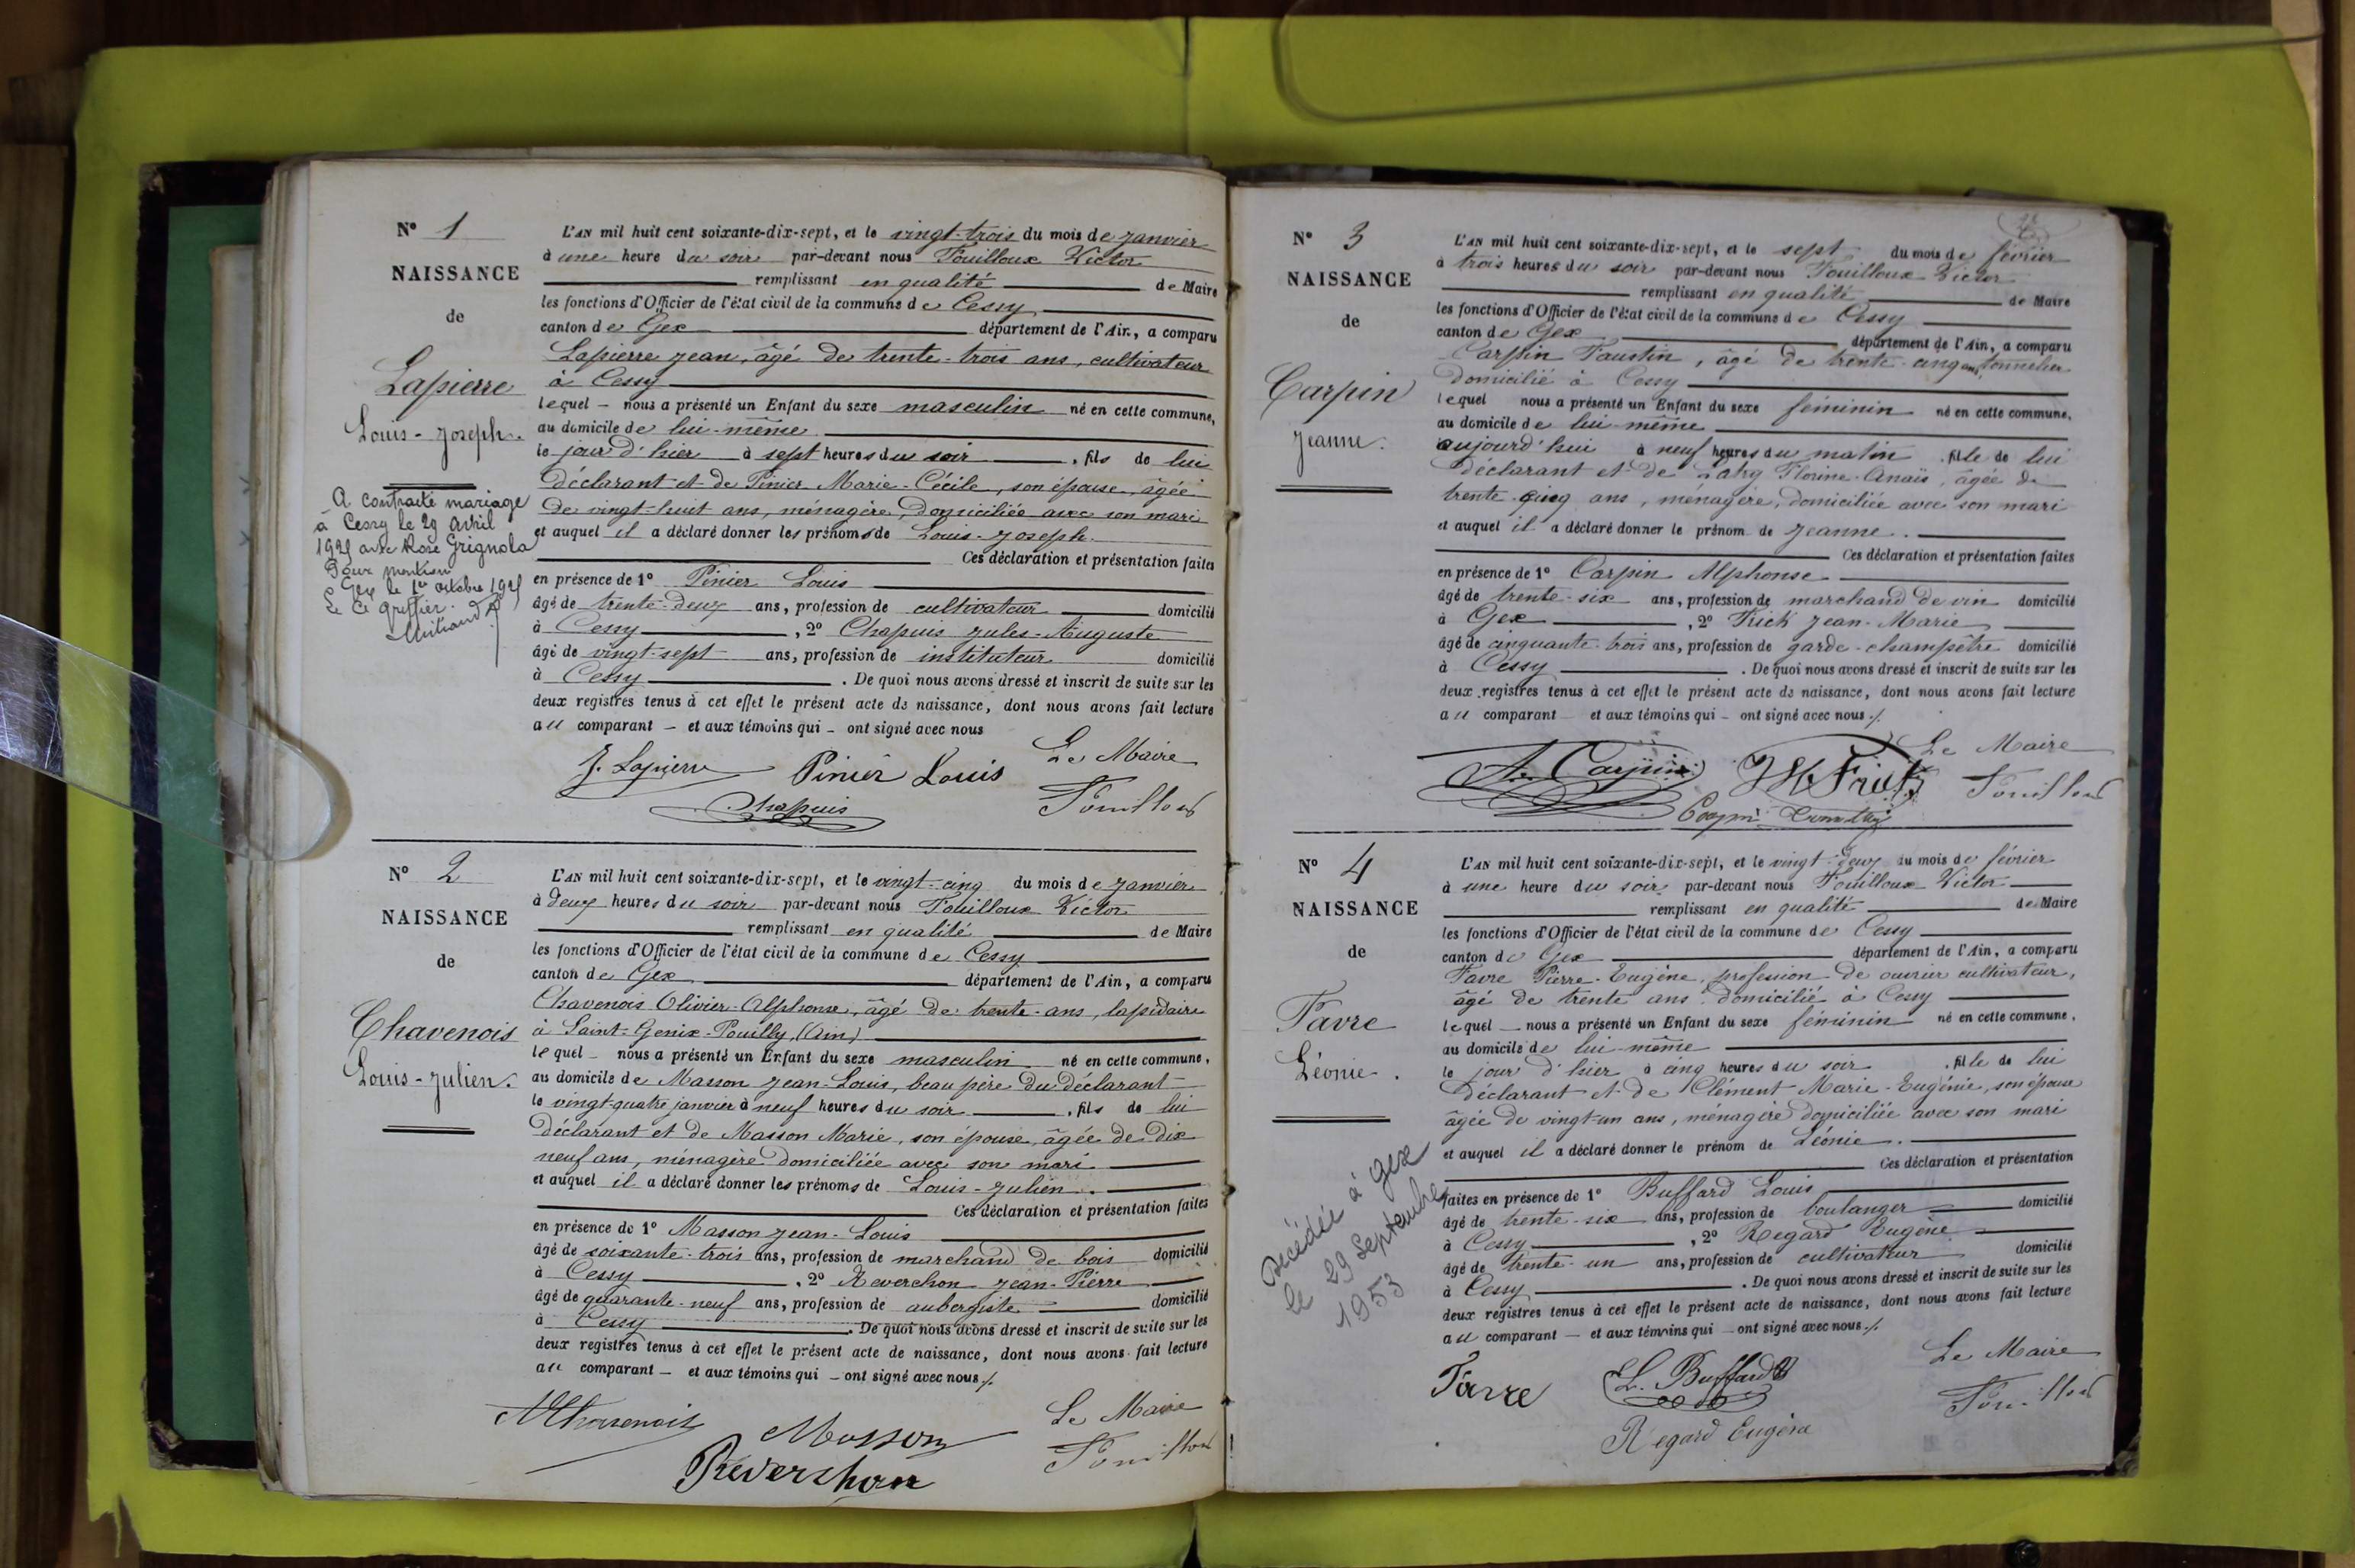 N° 1
NAISSANCE
de
Lapierre
Louis-Joseph.
A contracté mariage
à Cessy le 29 avril
avec Rose Grignola
Pour mention
Gex le 1er octobre
Le Ce Greffier.
L'AN mil huit cent soixante-dix-sept, et le vingt-trois du mois de janvier
à une heure du soir par-devant nous Fouilloux Victor
remplissant en qualité de Maire
les fonctions d'Officier de l'état civil de la commune de Cessy
canton de Gex département de l'Ain, a comparu
Lapierre Jean, âgé de trente-trois ans, cultivateur
à Cessy
lequel – nous a présenté un Enfant du sexe masculin né en cette commune,
au domicile de lui-même
le jour d'hier à sept heures du soir, fils de lui
déclarant et de Pinier Marie-Cécile, son épouse, âgée
de vingt-huit ans, ménagère, domiciliée avec son mari
et auquel il a déclaré donner les prénoms de Louis-Joseph.
Ces déclaration et présentation faites
en présence de 1° Pinier Louis
âgé de trente-deux ans, profession de cultivateur domicilié
à Cessy, 2° Chapuis Jules-Auguste
âgé de vingt-sept ans, profession de instituteur domicilié
à Cessy. De quoi nous avons dressé et inscrit de suite sur les
deux registres tenus à cet effet le présent acte de naissance, dont nous avons fait lecture
au comparant – et aux témoins qui – ont signé avec nous
Le Maire
J. Lapierre Pinier Louis
Chapuis Fouilloux
N° 2
NAISSANCE
de
Chavenois
Louis-Julien.
L'AN mil huit cent soixante-dix-sept, et le vingt-cinq du mois de janvier
à deux heures du soir par-devant nous Fouilloux Victor
remplissant en qualité de Maire
les fonctions d'Officier de l'état civil de la commune de Cessy
canton de Gex département de l'Ain, a comparu
Chavenois Olivier-Alphonse, âgé de trente-ans, lapidaire
à Saint-Genix-Pouilly, (Ain)
lequel – nous a présenté un Enfant du sexe masculin né en cette commune,
au domicile de Masson Jean-Louis, beau père du déclarant
le vingt-quatre janvier à neuf heures du soir, fils de lui
déclarant et de Masson Marie, son épouse, âgée de dix
neuf ans, ménagère domiciliée avec son mari
et auquel il a déclaré donner les prénoms de Louis-Julien.
Ces déclaration et présentation faites
en présence de 1° Masson Jean-Louis
âgé de soixante-trois ans, profession de marchand de bois domicilié
à Cessy, 2° Reverchon Jean-Pierre
âgé de quarante-neuf ans, profession de aubergiste domicilié
à Cessy. De quoi nous avons dressé et inscrit de suite sur les
deux registres tenus à cet effet le présent acte de naissance, dont nous avons fait lecture
au comparant – et aux témoins qui – ont signé avec nous ./.
Le Maire
Chavenois Masson
Reverchon Fouilloux
N° 3
NAISSANCE
de
Carpin
Jeanne.
L'AN mil huit cent soixante-dix-sept, et le sept du mois de février
à trois heures du soir par-devant nous Fouilloux Victor
remplissant en qualité de Maire
les fonctions d'Officier de l'état civil de la commune de Cessy
canton de Gex département de l'Ain, a comparu
Carpin Faustin, âgé de trente-cinq ans, tonnelier
domicilié à Cessy
lequel nous a présenté un Enfant du sexe féminin né en cette commune,
au domicile de lui-même
aujourd'hui à neuf heures du matin, fille de lui
déclarant et de Florine-Anaïs, âgée de
trente-cinq ans, ménagère, domiciliée avec son mari
et auquel il a déclaré donner le prénom de Jeanne.
Ces déclaration et présentation faites
en présence de 1° Carpin Alphonse
âgé de trente-six ans, profession de marchand de vin domicilié
à Gex, 2° Jean-Marie
âgé de cinquante-trois ans, profession de garde-champêtre domicilié
à Cessy. De quoi nous avons dressé et inscrit de suite sur les
deux registres tenus à cet effet le présent acte de naissance, dont nous avons fait lecture
au comparant – et aux témoins qui – ont signé avec nous ./.
Le Maire
A. Carpin Fouilloux
N° 4
NAISSANCE
de
Favre
Léonie.
Décédée à Gex
le 29 Septembre
1953
L'AN mil huit cent soixante-dix-sept, et le vingt-deux du mois de février
à une heure du soir par-devant nous Fouilloux Victor
remplissant en qualité de Maire
les fonctions d'Officier de l'état civil de la commune de Cessy
canton de Gex département de l'Ain, a comparu
Favre Pierre-Eugène, profession de ouvrier cultivateur,
âgé de trente ans domicilié à Cessy
lequel – nous a présenté un Enfant du sexe féminin né en cette commune,
au domicile de lui-même
le jour d'hier à cinq heures du soir, fille de lui
déclarant et de Clément Marie-Eugénie, son épouse
âgée de vingt-un ans, ménagère domiciliée avec son mari
et auquel il a déclaré donner le prénom de Léonie.
Ces déclaration et présentation
faites en présence de 1° Buffard Louis
âgé de trente-six ans, profession de boulanger domicilié
à Cessy, 2° Regard Eugène
âgé de trente-un ans, profession de cultivateur domicilié
à Cessy. De quoi nous avons dressé et inscrit de suite sur les
deux registres tenus à cet effet le présent acte de naissance, dont nous avons fait lecture
au comparant – et aux témoins qui – ont signé avec nous ./.
Le Maire
Favre L. Buffard Fouilloux
Regard Eugène